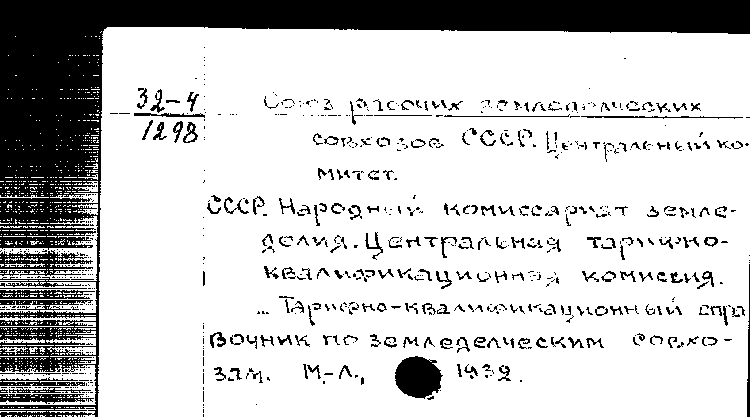 32-4
1298
Союз рабочих земледелческих
совхозов СССР. Центральный ко-
митет.
СССР. Народный комиссариат земле-
делия. Центральная тарифно-
квалификационная комиссия.
... Тарифно-квалификационный спра
вочник по земледелческим совхо-
зам. М.-Л., 1932.